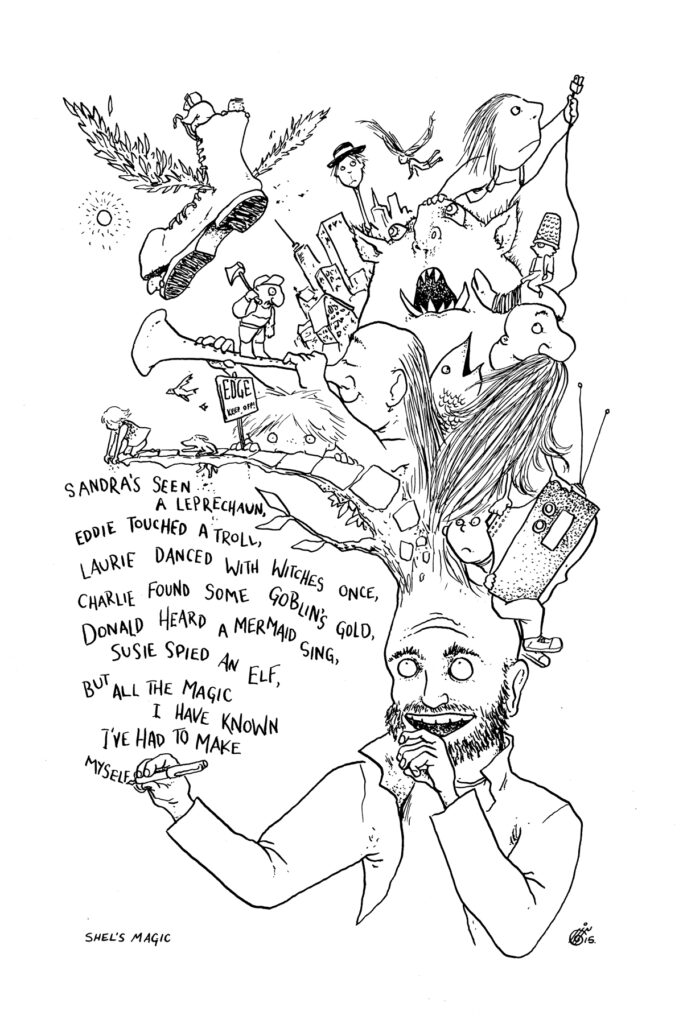 EDGE
KEEP OFF!
SANDRA'S SEEN
A LEPRECHAUN,
EDDIE TOUCHED A TROLL,
LAURIE DANCED WITH WITCHES ONCE,
CHARLIE FOUND SOME GOBLIN'S GOLD,
DONALD HEARD A MERMAID SING,
SUSIE SPIED AN ELF,
BUT ALL THE MAGIC
I HAVE KNOWN
I'VE HAD TO MAKE
MYSELF
SHEL'S MAGIC
15.